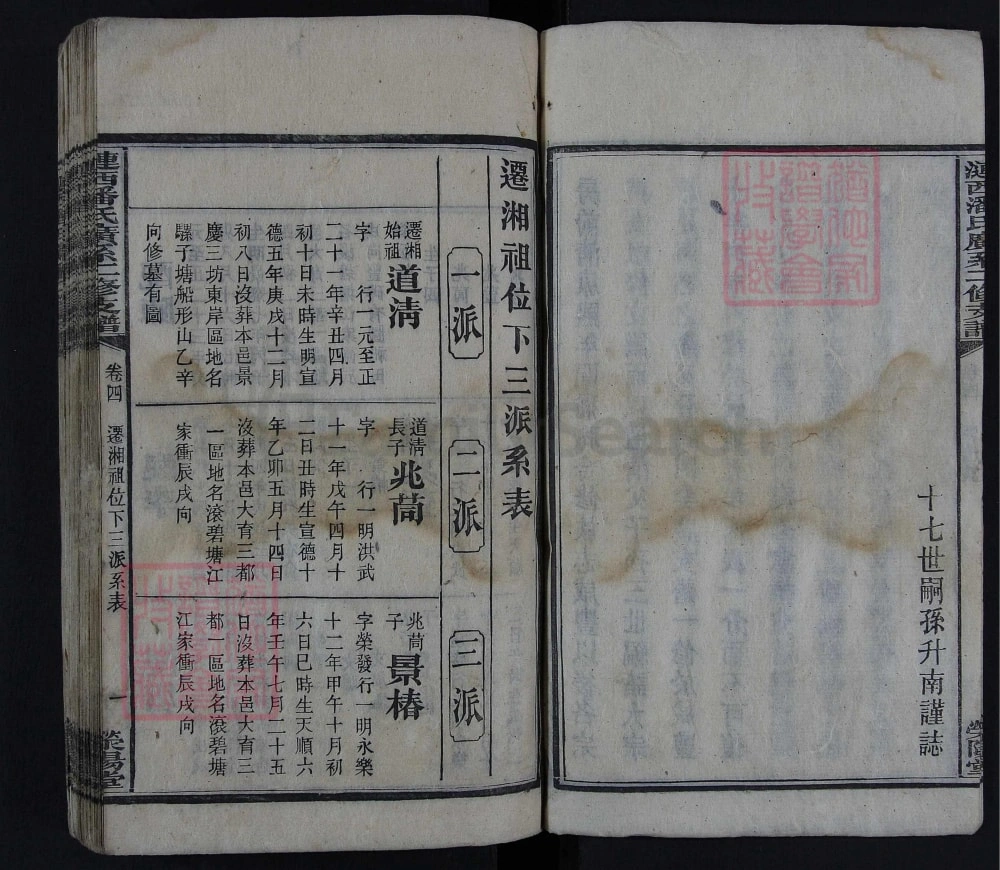 十七世嗣孫升南謹誌
遷湘祖位下三派系表
一派
二派
三派
遷湘始祖
道淸
字 行一元至正
二十一年辛丑四月
初十日未時生明宣
德五年庚戌十二月
初八日沒葬本邑景
慶三坊東岸區地名
騾子塘船形山乙辛
向修墓有圖
道淸長子
兆茼
字 行一明洪武
十一年戊午四月十
二日丑時生宣德十
年乙卯五月十四日
沒葬本邑大育三都
一區地名滾碧塘江
家衝辰戌向
兆茼子
景椿
字榮發行一明永樂
十二年甲午十月初
六日巳時生天順六
年壬午七月二十五
日沒葬本邑大育三
都一區地名滾碧塘
江家衝辰戌向
卷四
遷湘祖位下三派系表
一
滎陽堂